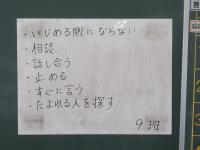 ・いじめる側にならない
・相談
・話し合う
・止める
・すぐに言う
・たよれる人を探す
9班